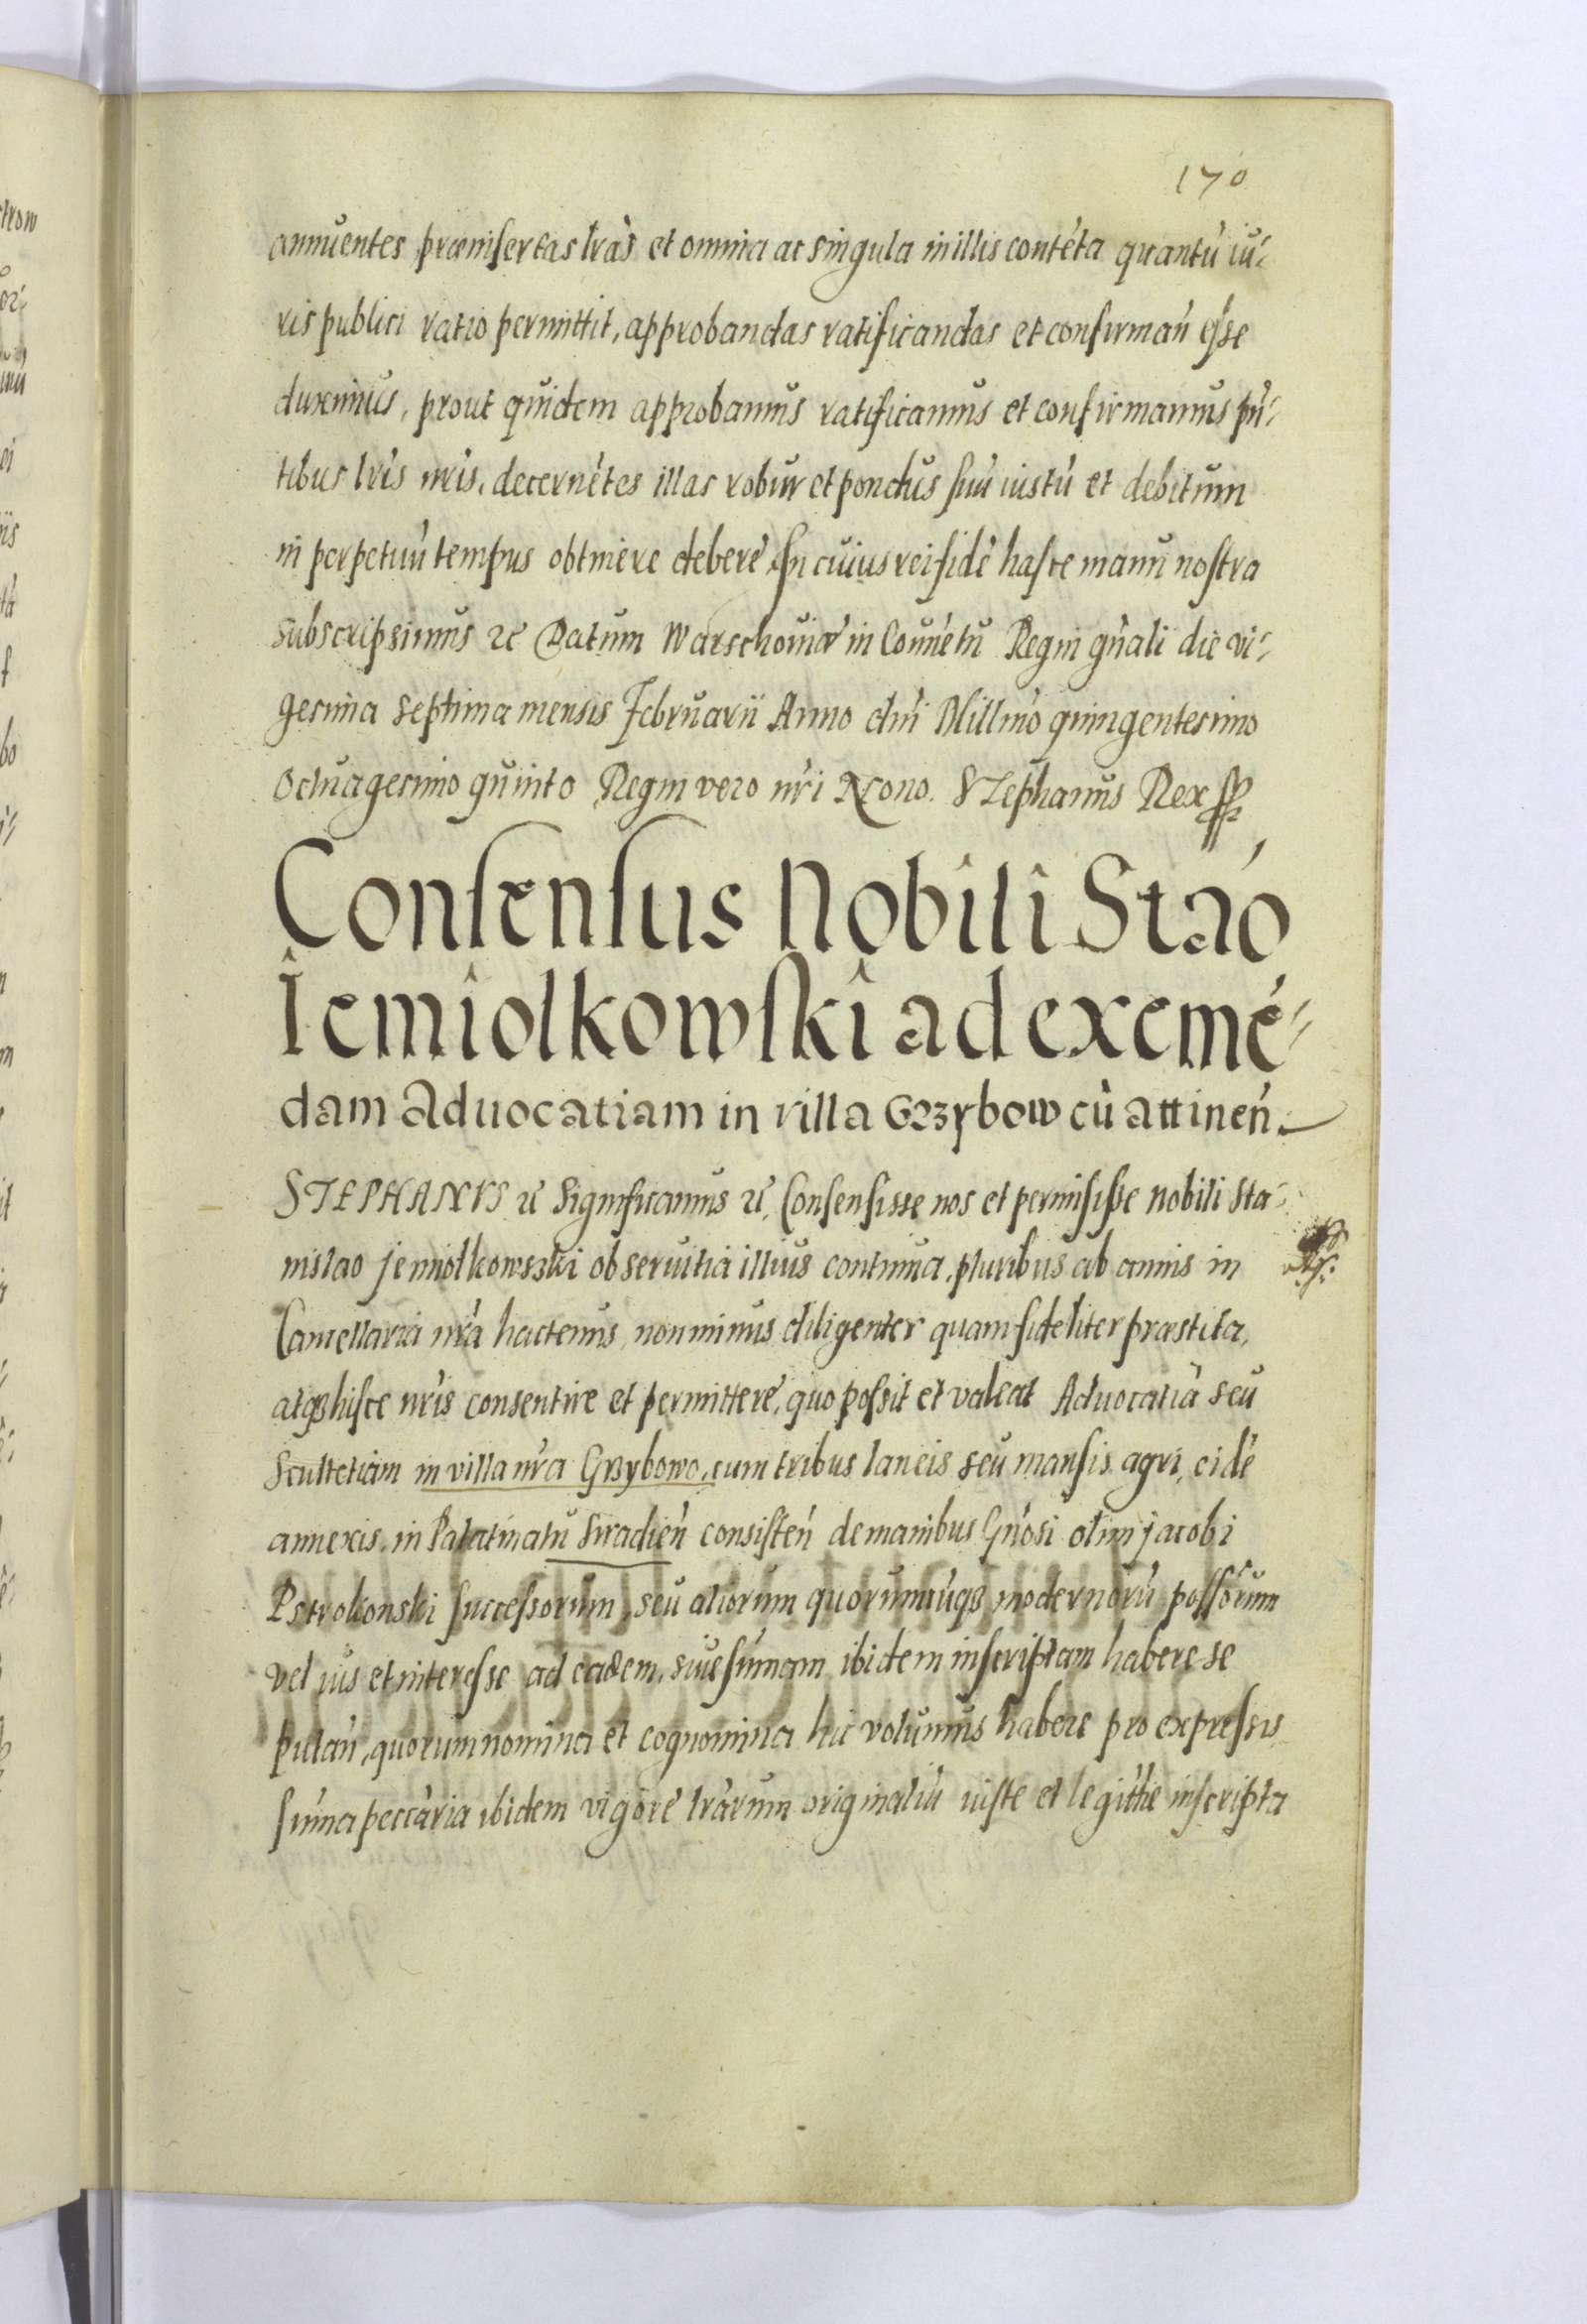 170
annuentes præinsertas lràs et omnia ac singula in illis contéta quantù iu-
ris publici ratio permittit, approbandas ratificandas et confirmań esse
duximus, prout quidem approbamus ratificamus et confirmamus pń-
tibus lrìs nrìs, decernétes illas robur et pondus suù iustù et debitum
in perpetuù tempus obtinere debere. In cuius rei fidè hasce manu nostra
subscripsimus ꝛc Datum Warschoviæ in Convétu Regni gńali die vi-
gesima septima mensis Februarii Anno dńi Millmo quingentesimo
Octuagesimo quinto Regni vero nŕi Nono. Stephanus Rex
Consensus Nobili Stao
Iemiolkowski ad exemé-
dam Aduocatiam in villa Grzybow cù attineń
STEPHANVS ꝛc Significamus ꝛc. Consensisse nos et permisisse Nobili Sta-
nislao Jemiołkowszki ob seruitia illius continua, pluribus ab annis in
Cancellaria nŕa hactenus, non minus diligenter quam fideliter præstita,
atqꝫ hisce nrìs consentire et permittere, quo possit et valeat Aduocatià seu
Scultetiam in villa nŕa Grzybowo, cum tribus laneis seu mansis agri, eidè
annexis, in Palatinatu Siradień consisteń de manibus Gńosi olim Jacobi
Pstrokonski successorum, seu aliorum quorumcùqꝫ modernorù possorum
vel ius et interesse ad eadem, siue sùmam ibidem inscriptam habere se
putań, quorum nomina et cognomina hic volumus habere pro expressis
sùma peccària ibidem vigore lràrum originaliù iuste et legittìe inscripta